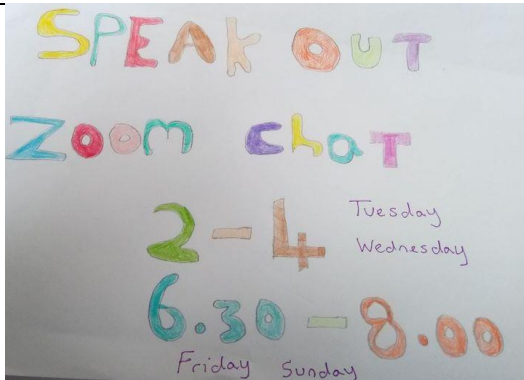 SPEAK OUT
Zoom chat
2-4 Tuesday
Wednesday
6.30-8.00
Friday Sunday